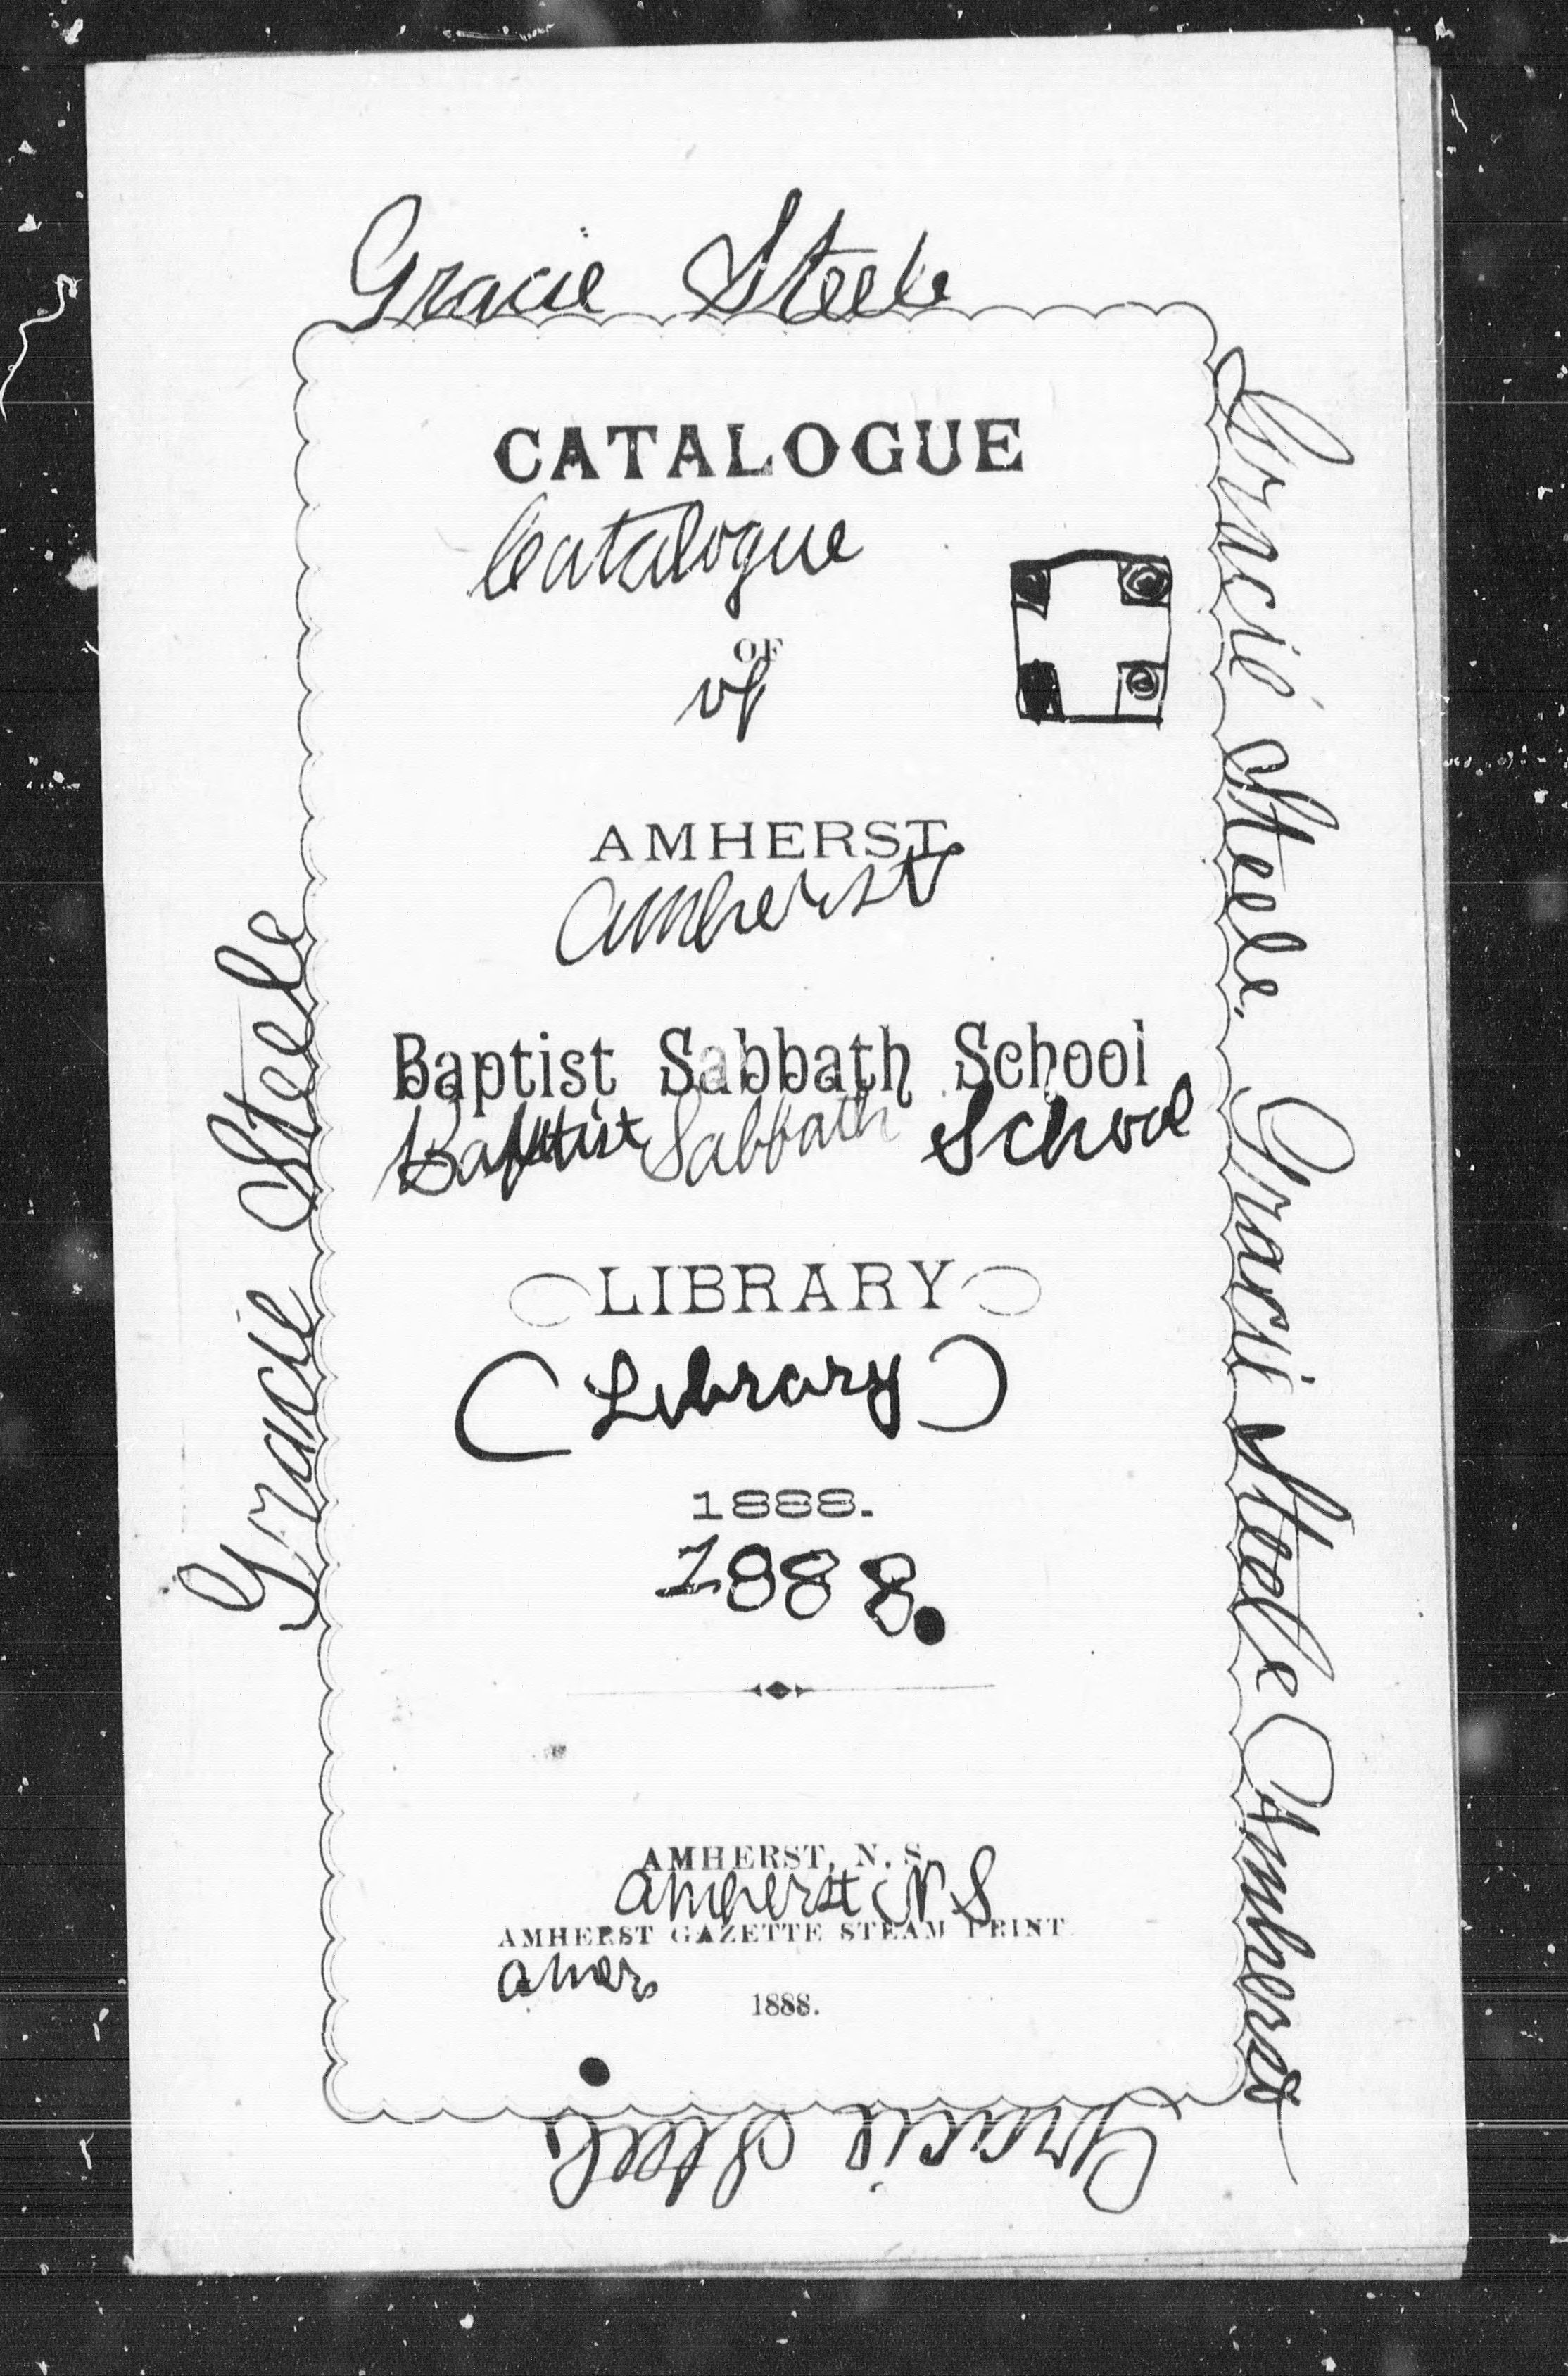 Gracie Steele
CATALOGUE
Catalogue
OF
of
AMHERST
Amherst
Baptist Sabbath School
Baptist Sabbath School
LIBRARY
(Library)
1888.
1888.
AMHERST, N. S.
Amherst N S
AMHERST GAZETTE STEAM PRINT.
amer
1888.
Gracie Steele
Gracie Steele
Gracie Steele. Gracie Steele Amherst